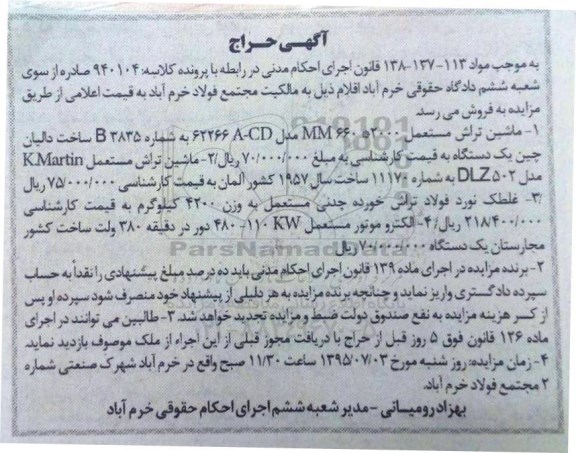 آگهی حراج
به موجب مواد ۱۱۳-۱۳۷-۱۳۸ قانون اجرای احکام مدنی در رابطه با پرونده کلاسه: ۹۴۰۱۰۴ صادره از سوی
شعبه ششم دادگاه حقوقی خرم آباد اقلام ذیل به مالکیت مجتمع فولاد خرم آباد به قیمت اعلامی از طریق
مزایده به فروش می رسد.
۱- ماشین تراش مستعمل ۳۰۰۰ MM ۶۶۰ مدل A-CD ۶۲۲۶۶ به شماره B ۳۸۳۵ ساخت دالیان
چین یک دستگاه به قیمت کارشناسی به مبلغ ۷۰/۰۰۰/۰۰۰ ریال/۲- ماشین تراش مستعمل K.Martin
مدل DLZ ۵۰۲ به شماره ۱۱۱۷۰ ساخت سال ۱۹۵۷ کشور آلمان به قیمت کارشناسی ۷۵/۰۰۰/۰۰۰ ریال
/۳- غلطک نورد فولاد تراش خورده چدنی مستعمل به وزن ۴۲۰۰ کیلوگرم به قیمت کارشناسی
۲۱۸/۴۰۰/۰۰۰ ریال/ ۴- الکترو موتور مستعمل KW ۱۱۰- ۴۸۰ دور در دقیقه ۳۸۰ ولت ساخت کشور
مجارستان یک دستگاه ۷۰/۰۰۰/۰۰۰ ریال
۲- برنده مزایده در اجرای ماده ۱۳۹ قانون اجرای احکام مدنی باید ده درصد مبلغ پیشنهادی را نقداً به حساب
سپرده دادگستری واریز نماید و چنانچه برنده مزایده به هر دلیلی از پیشنهاد خود منصرف شود سپرده او پس
از کسر هزینه مزایده به نفع صندوق دولت ضبط و مزایده تجدید خواهد شد. ۳- طالبین می توانند در اجرای
ماده ۱۲۶ قانون فوق ۵ روز قبل از حراج با دریافت مجوز قبلی از این اجراء از ملک موصوف بازدید نماید.
۴- زمان مزایده: روز شنبه مورخ ۱۳۹۵/۰۷/۰۳ ساعت ۱۱/۳۰ صبح واقع در خرم آباد شهرک صنعتی شماره
۲ مجتمع فولاد خرم آباد.
بهزاد رومیسانی - مدیر شعبه ششم اجرای احکام حقوقی خرم آباد
ParsNamadData